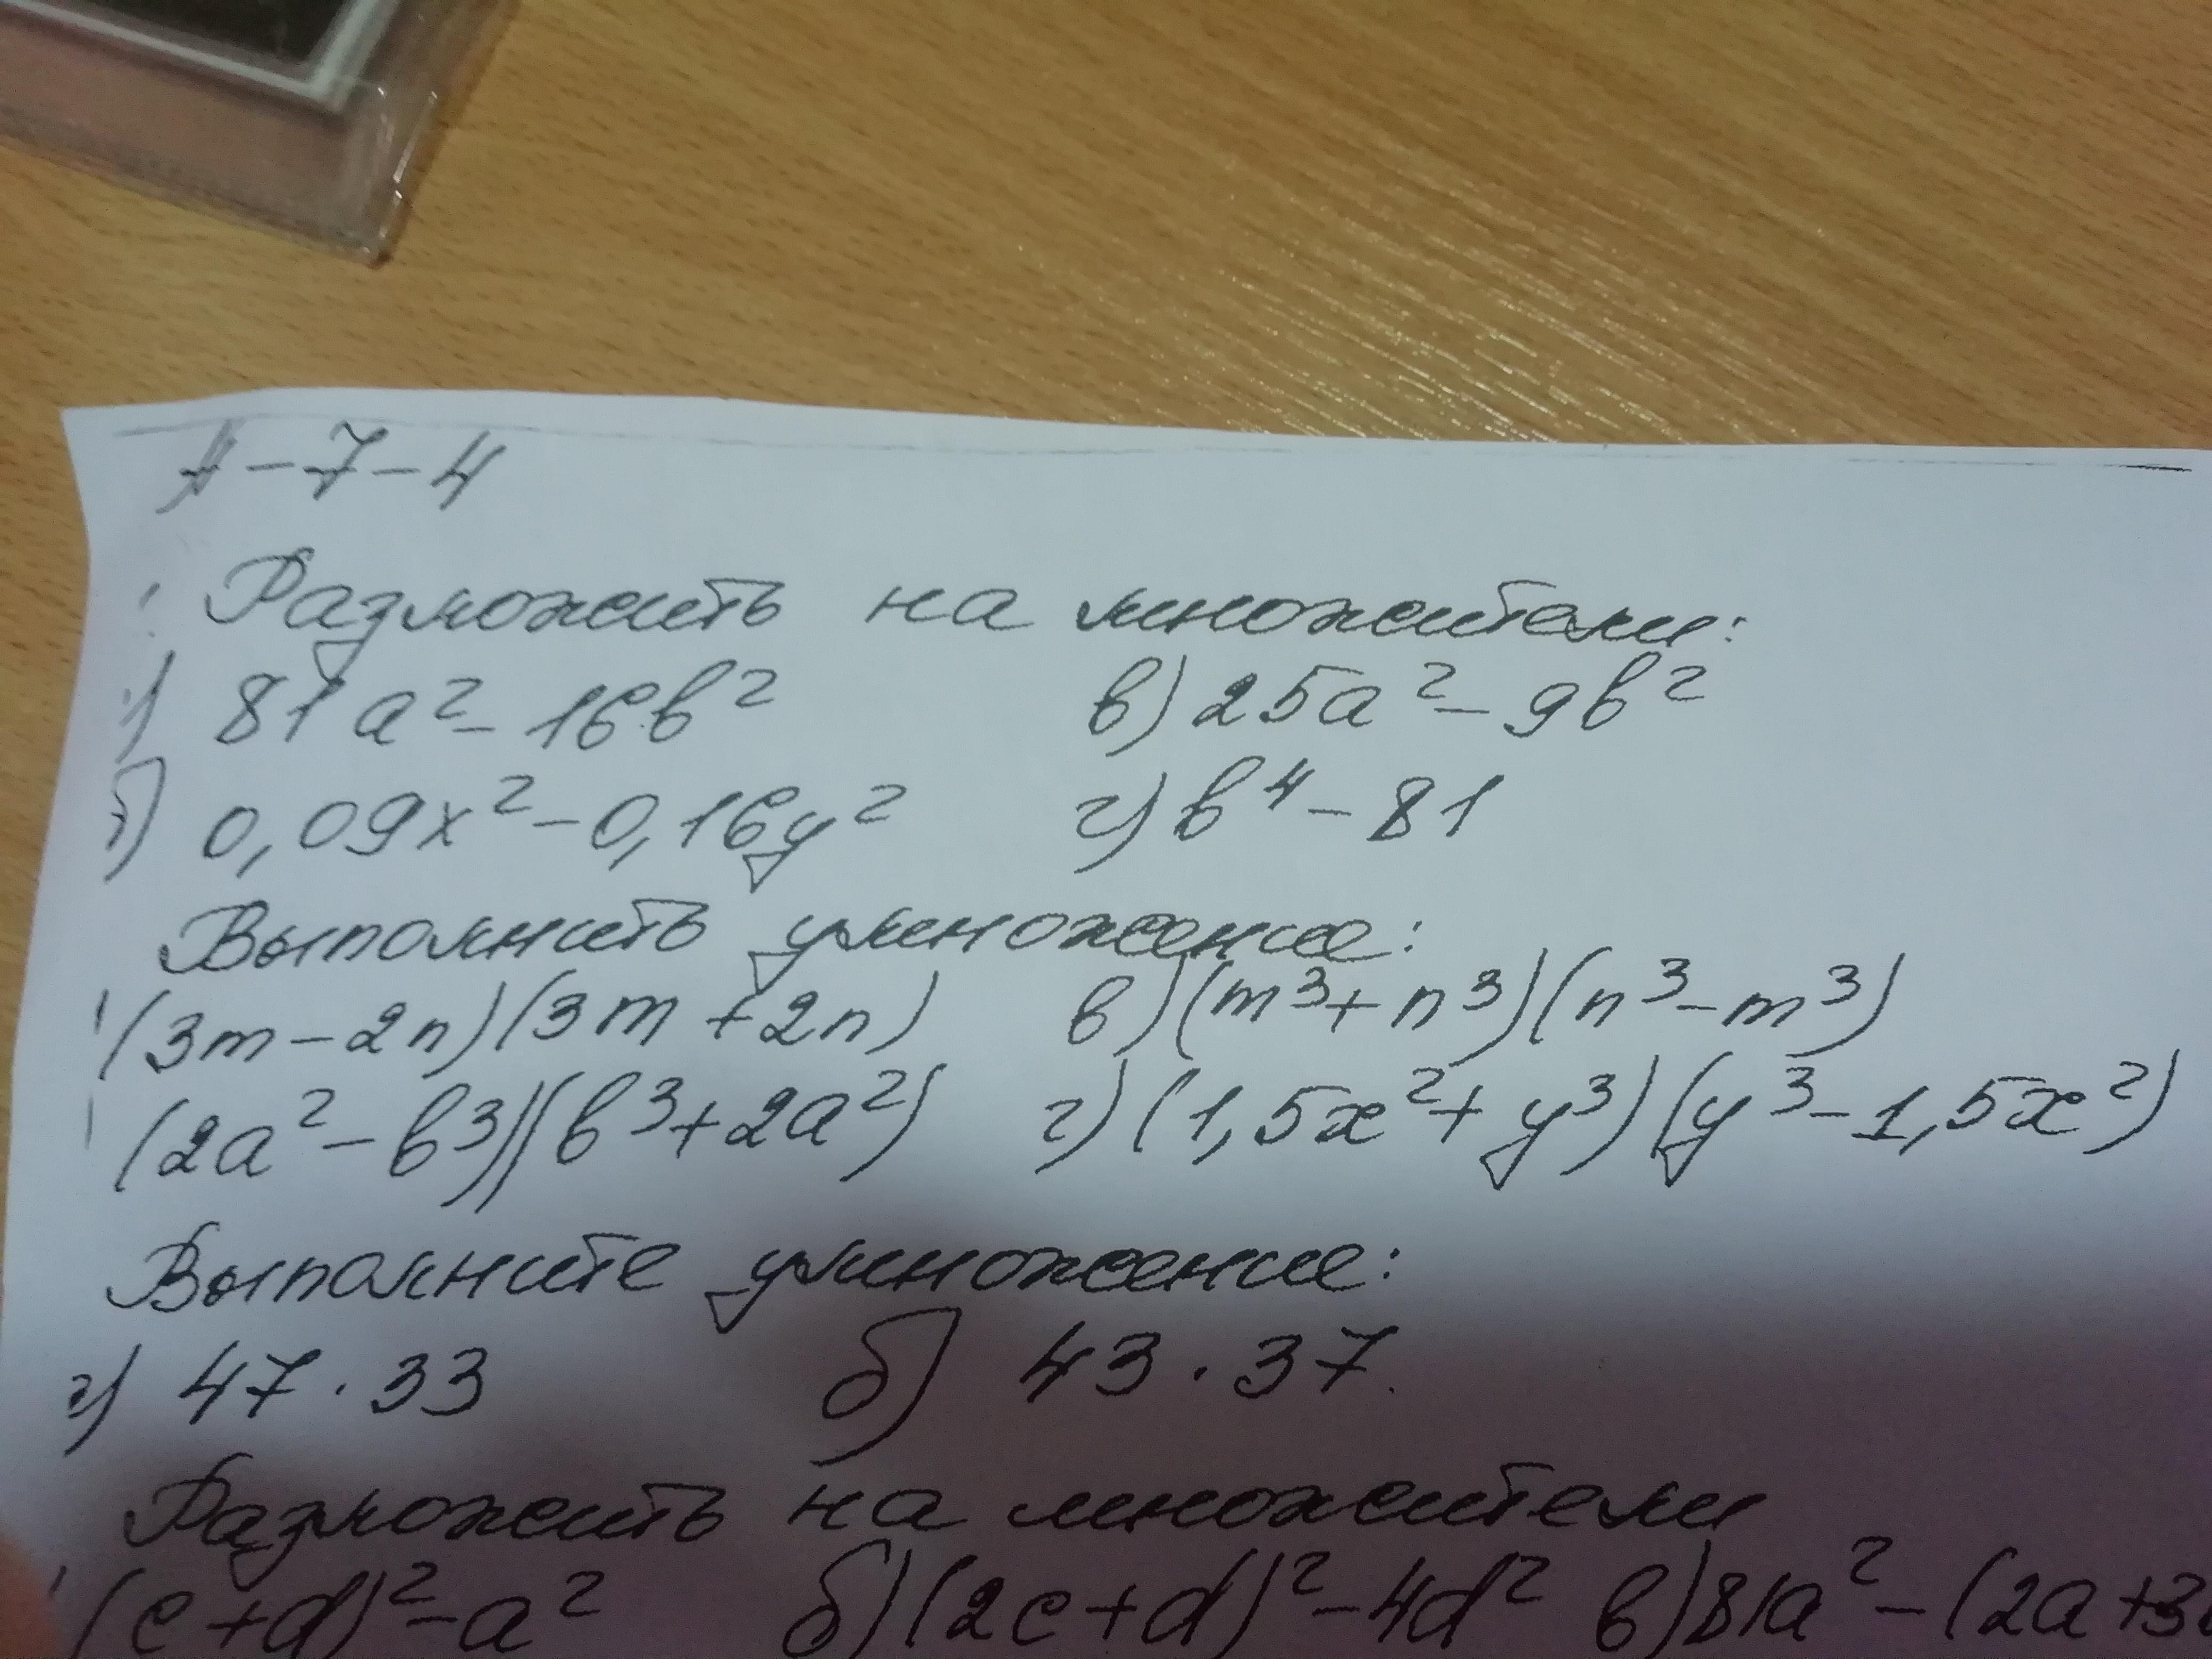 А-7-4
Разложить на множители:
а) 81a² - 16b² в) 25a² - 9b²
б) 0,09x² - 0,16y² г) b⁴ - 81
Выполнить умножение:
(3m - 2n)(3m + 2n) в) (m³ + n³)(n³ - m³)
(2a² - b³)(b³ + 2a²) г) (1,5x² + y³)(y³ - 1,5x²)
Выполните умножение:
а) 47 · 33 б) 43 · 37.
Разложить на множители
(c + d)² - a² б) (2c + d)² - 4d² в) 81a² - (2a + 3